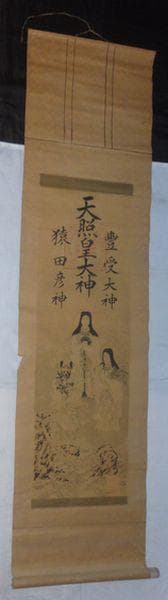 豐受大神
天照皇大神
猿田彦神